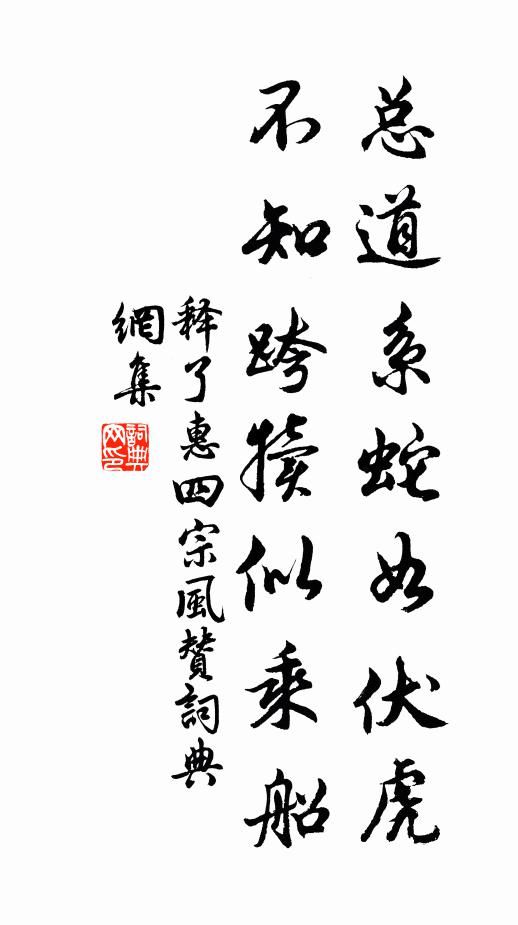 总道系蛇如伏虎
不知跨犊似乘船
释了惠四宗風贊詞典
網集
詞典
网印